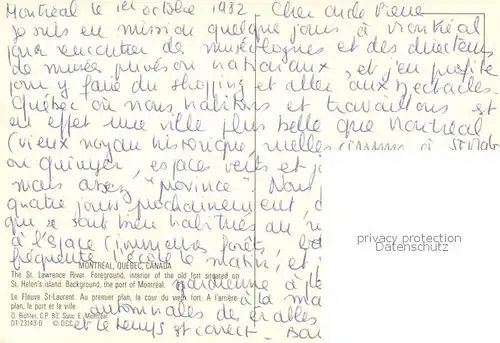 Montréal le 1er octobre 1982 Cher oncle Pierre
je suis en mission quelque jours à Montréal
pour rencontrer de muséologues et des directeurs
de musée privés ou nationaux, et j'en profite
pour y faire du shopping et aller aux spectacles.
Québec où nous habitons et travaillons est
en effet une ville plus belle que Montréal
(vieux noyau historique, ruelles comme à St Malo
ou Quimper, espaces verts et
mais assez "province" Nous
quatre jours prochainement,
que se sont bien habitués au
à l'espace (immenses forêts,
MONTREAL, QUEBEC, CANADA
fréquente l'école le matin, et
The St. Lawrence River. Foreground, interior of the old fort situated on
St. Helen's island. Background, the port of Montréal.
gardienne à
Le Fleuve St-Laurent. Au premier plan, la cour du vieux fort. A l'arrière
à la
plan, le port et la ville
automnales des érables
D. Richter, C.P. 83, Succ. E., Montréal
DT-23143-D © D.C.C.
et le temps est correct.
privacy protection
Datenschutz